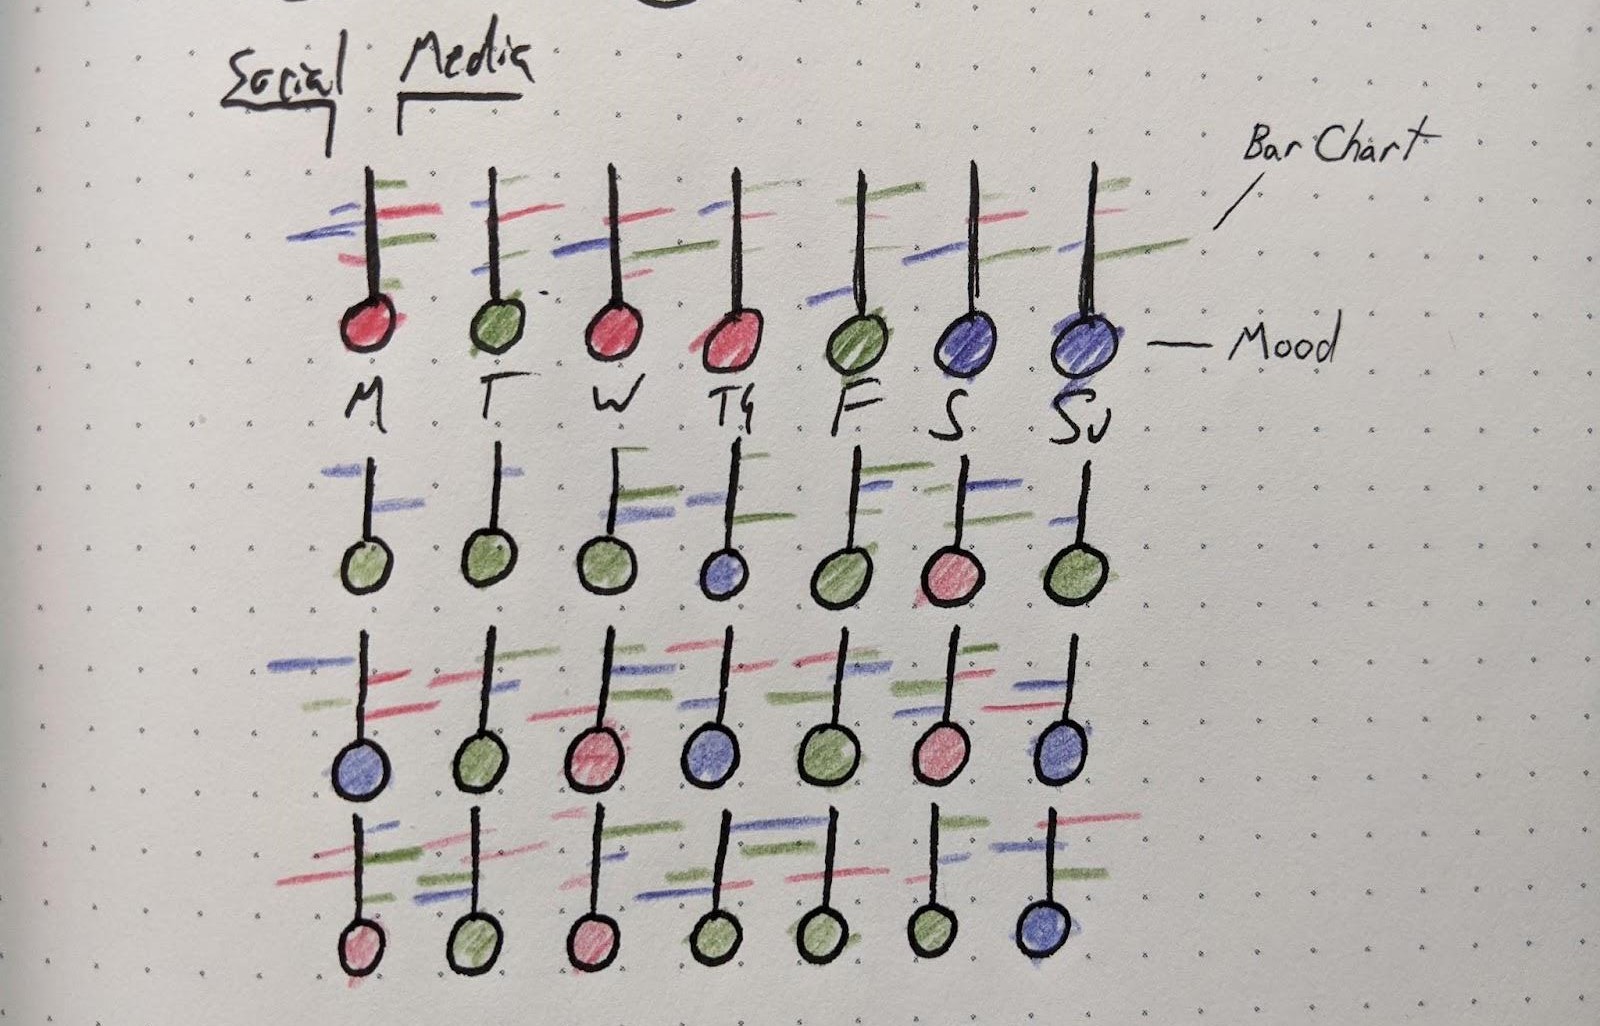 Social Media
Bar Chart
Mood
M T W Th F S Su